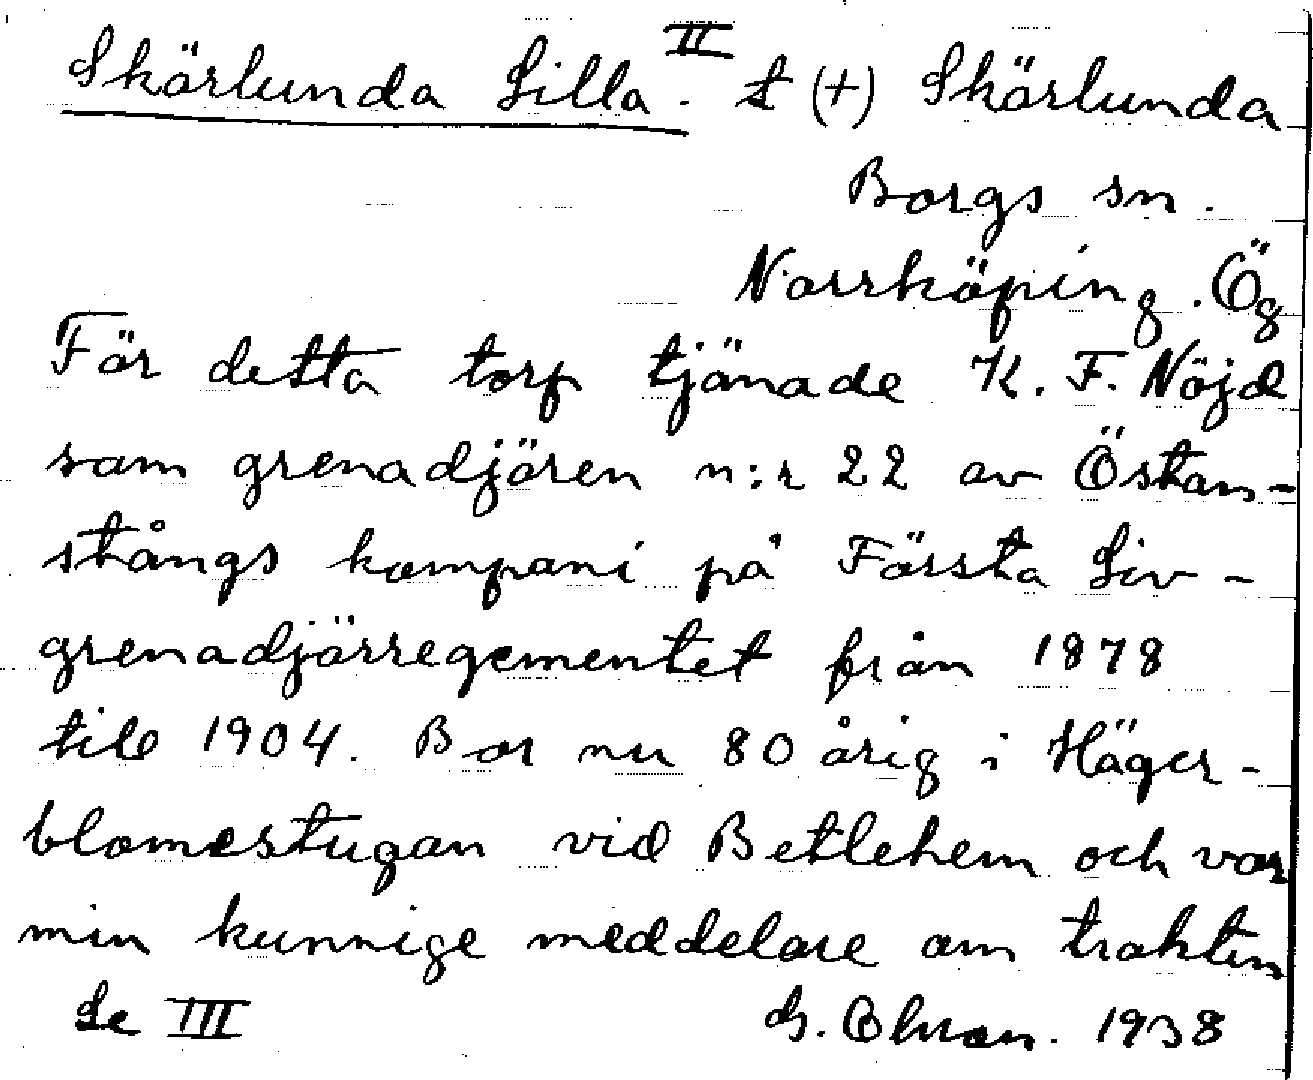 Skärlunda Lilla II. t (+) Skärlunda
Borgs sn.
Norrköping. Ög
För detta torp tjänade K. F. Nöjd
som grenadjören n:r 22 av Östan-
stångs kompani på Första Liv-
grenadjärregementet från 1878
till 1904. Bor nu 80 årig i Häger-
blomestugan vid Betlehem och var
min kunnige meddelare om trakten
Se III G. 1938